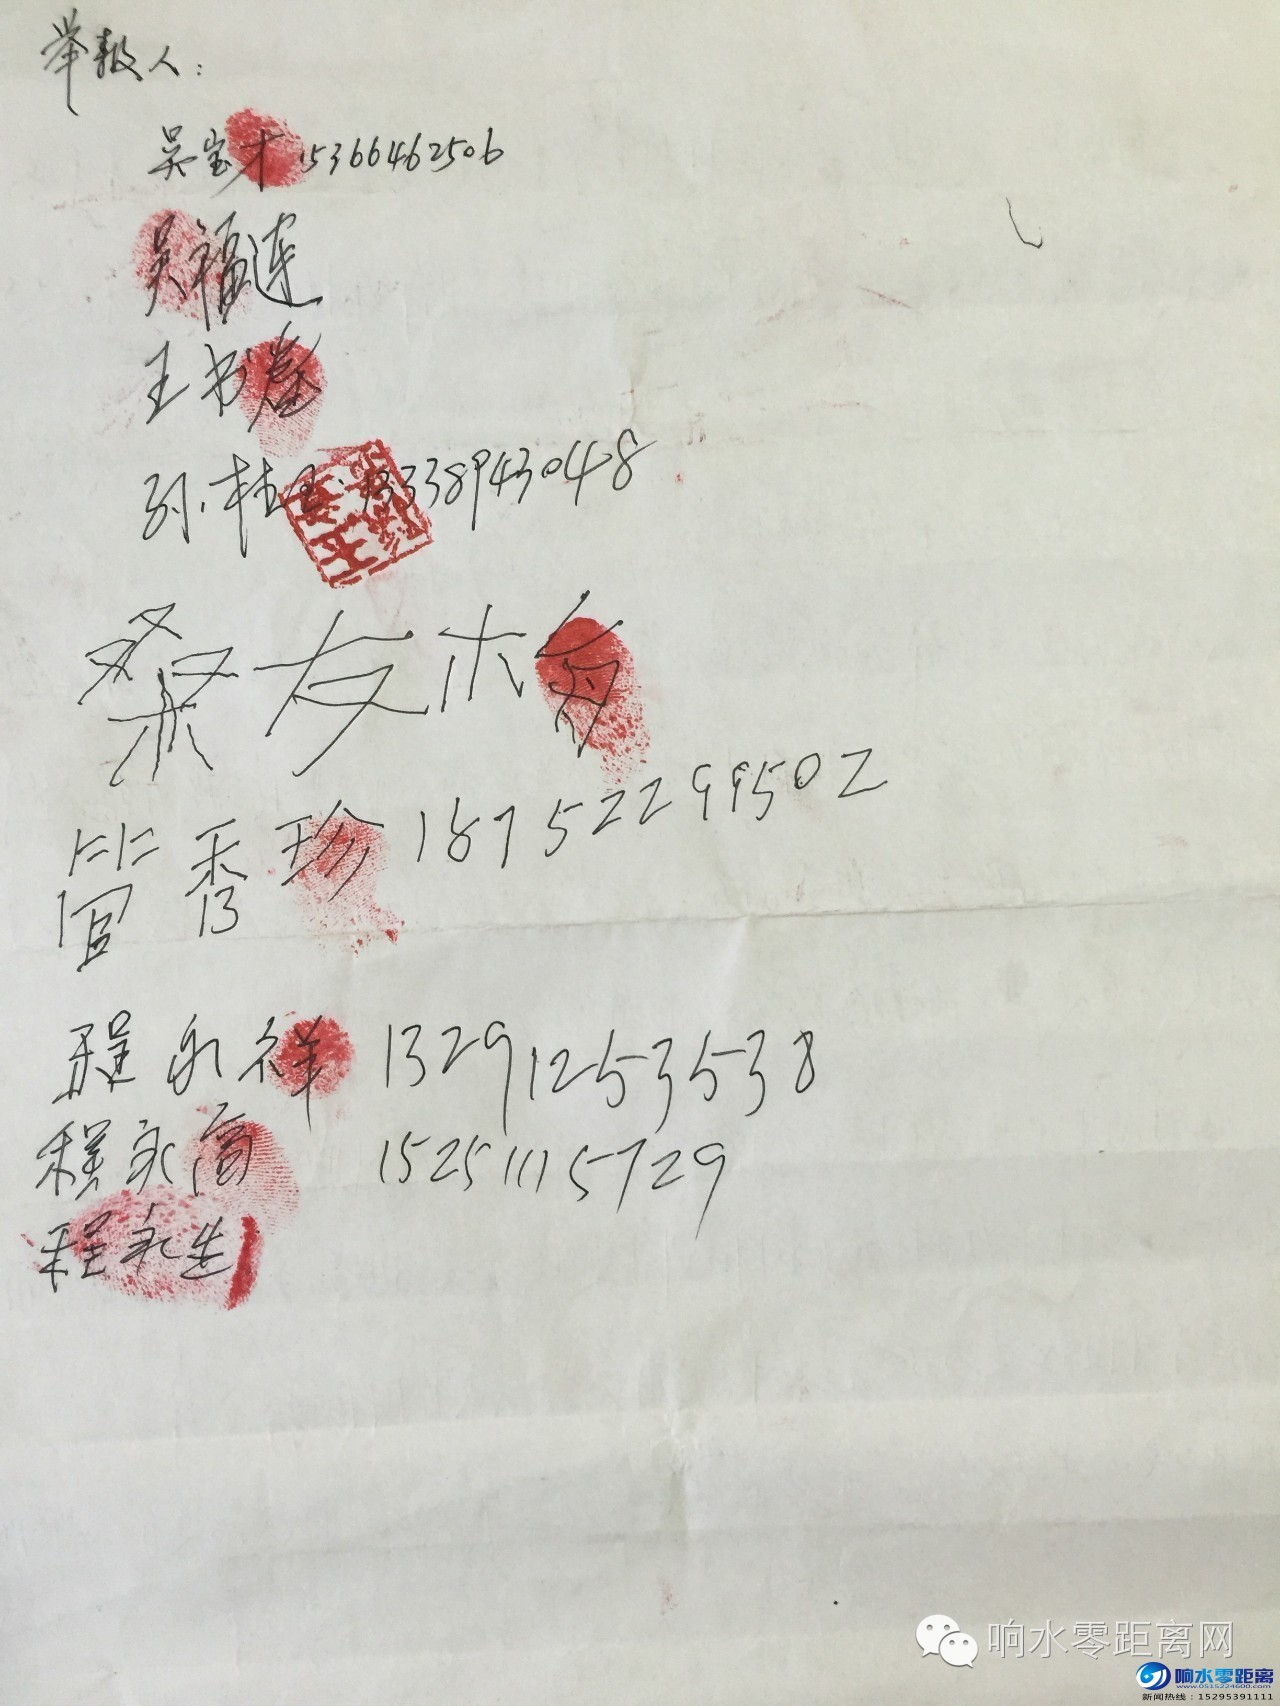 举报人：
吴宝才 15366462506
吴福连
王书
孙桂 13338943048
桑友
管秀珍 18752299502
程永祥 13291253538
程永高 15251115729
程永生
响水零距离网
响水零距离
www.0515224600.com
新闻热线：15295391113